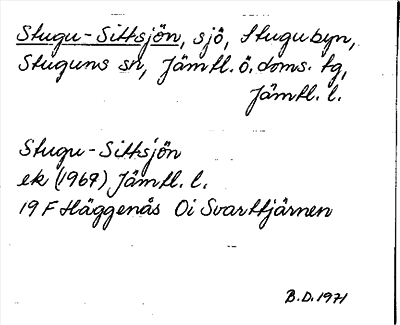 Stugu-Sittsjön, sjö, Stugubyn,
Stuguns sn, Jämtl. ö. doms. tg,
Jämtl. l.
Stugu-Sittsjön
ek (1969) Jämtl. l.
19 F Häggenås Oi Svarttjärnen
B.D. 1971